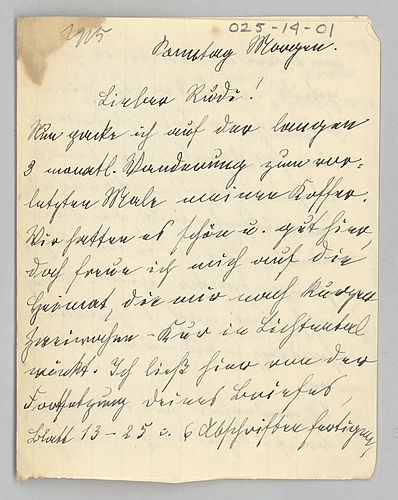 025-14-01
1915
Samstag Morgen.
Lieber Rudi!
Nun packe ich auf der langen
3 monatl. Wanderung zum vor-
letzten Male meinen Koffer.
Wir hatten es schön u. gut hier,
doch freue ich mich auf die
Heimat, die mir nach kurzer
Zweiwochen-Kur in Lichtental
winkt. Ich ließ hier von der
Fortsetzung deines Briefes,
Blatt 13-25 6 Abschriften fertigen,